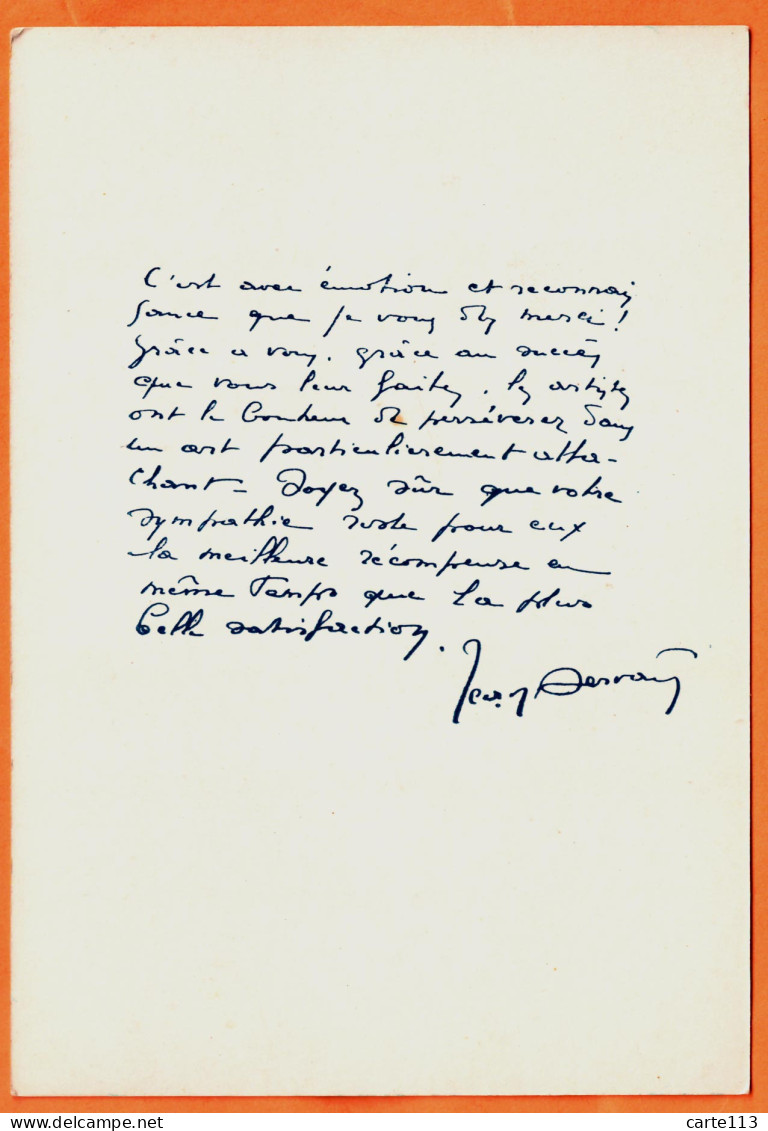 C'est avec émotion et reconnais
sance que je vous dis merci !
grâce a vous. grâce au succès
que vous leur faites. les artistes
ont le bonheur de persévérer dans
un art particulierement atta-
chant - Soyez sûr que votre
sympathie reste pour eux
la meilleure récompense en
même temps que la plus
belle satisfaction.
Jean Servais
carte113